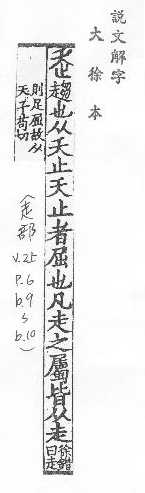 說文解字
大徐本
趨也从夭止夭止者屈也凡走之屬皆从走
徐鍇
曰走
則足屈故从
夭子苟切
(走部
v.25
p.6
b.9
s
b.10)